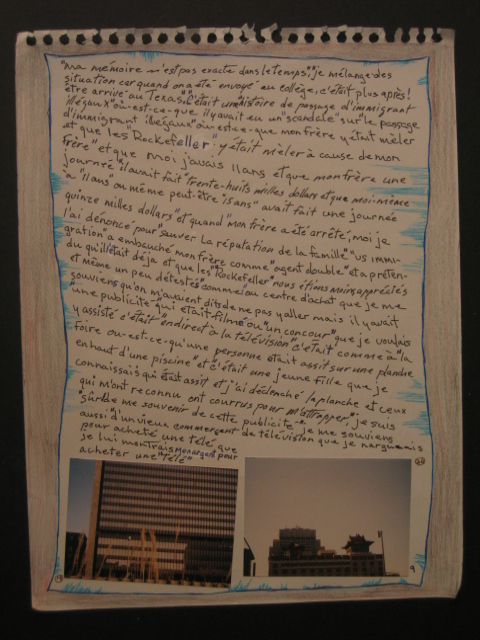 "ma mémoire n'est pas exacte dans le temps", "je mélange des
situation car quand on a été envoyé au collège, c'était plus après!
être arrivé au Texas", "c'était une histoire de passage d'immigrant
illégaux" ou-est-ce-que il y avait eu un "scandale" sur "le passage
d'immigrant illégaux" ou-est-ce-que mon frère y était mèler
et que les "Rockefeller" y était mèler à cause de mon
frère" et que moi j'avais 11 ans et que mon frère une
journée "il avait fait "trente-huits milles dollars et que moi-même
à "11 ans" ou même peut-être "15 ans" avait fait une journée
quinze milles dollars" et quand "mon frère a été arrêté, moi je
l'ai dénoncé pour "sauver. La réputation de la famille" "us immi-
gration" a embauché mon frère comme "agent double" et a préten-
du qu'il était déja et que les "Rockefeller" nous étions moins appréciés
et même un peu détestés" comme au centre d'achat que je me
souviens qu'on m'avaient dits de ne pas y aller mais il y avait
"une publicité" qui était filmé ou "un concour" que je voulais
y assisté c'était "en direct à la télévision" c'était comme à "la
foire ou-est-ce-qu'une personne était assit sur une planche
en haut d'une piscine" et c'était une jeune fille que je
connaissais qui était assit et j'ai déclenché la planche et ceux
qui m'ont reconnu ont courrus pour m'attrapper", je suis
sûr de me souvenir de cette publicité", je me souviens
aussi d'un vieux commerçant de télévision que je narguenais
pour acheté une télé que
je lui montrais mon argent pour
acheter une "télé"
20
19
9